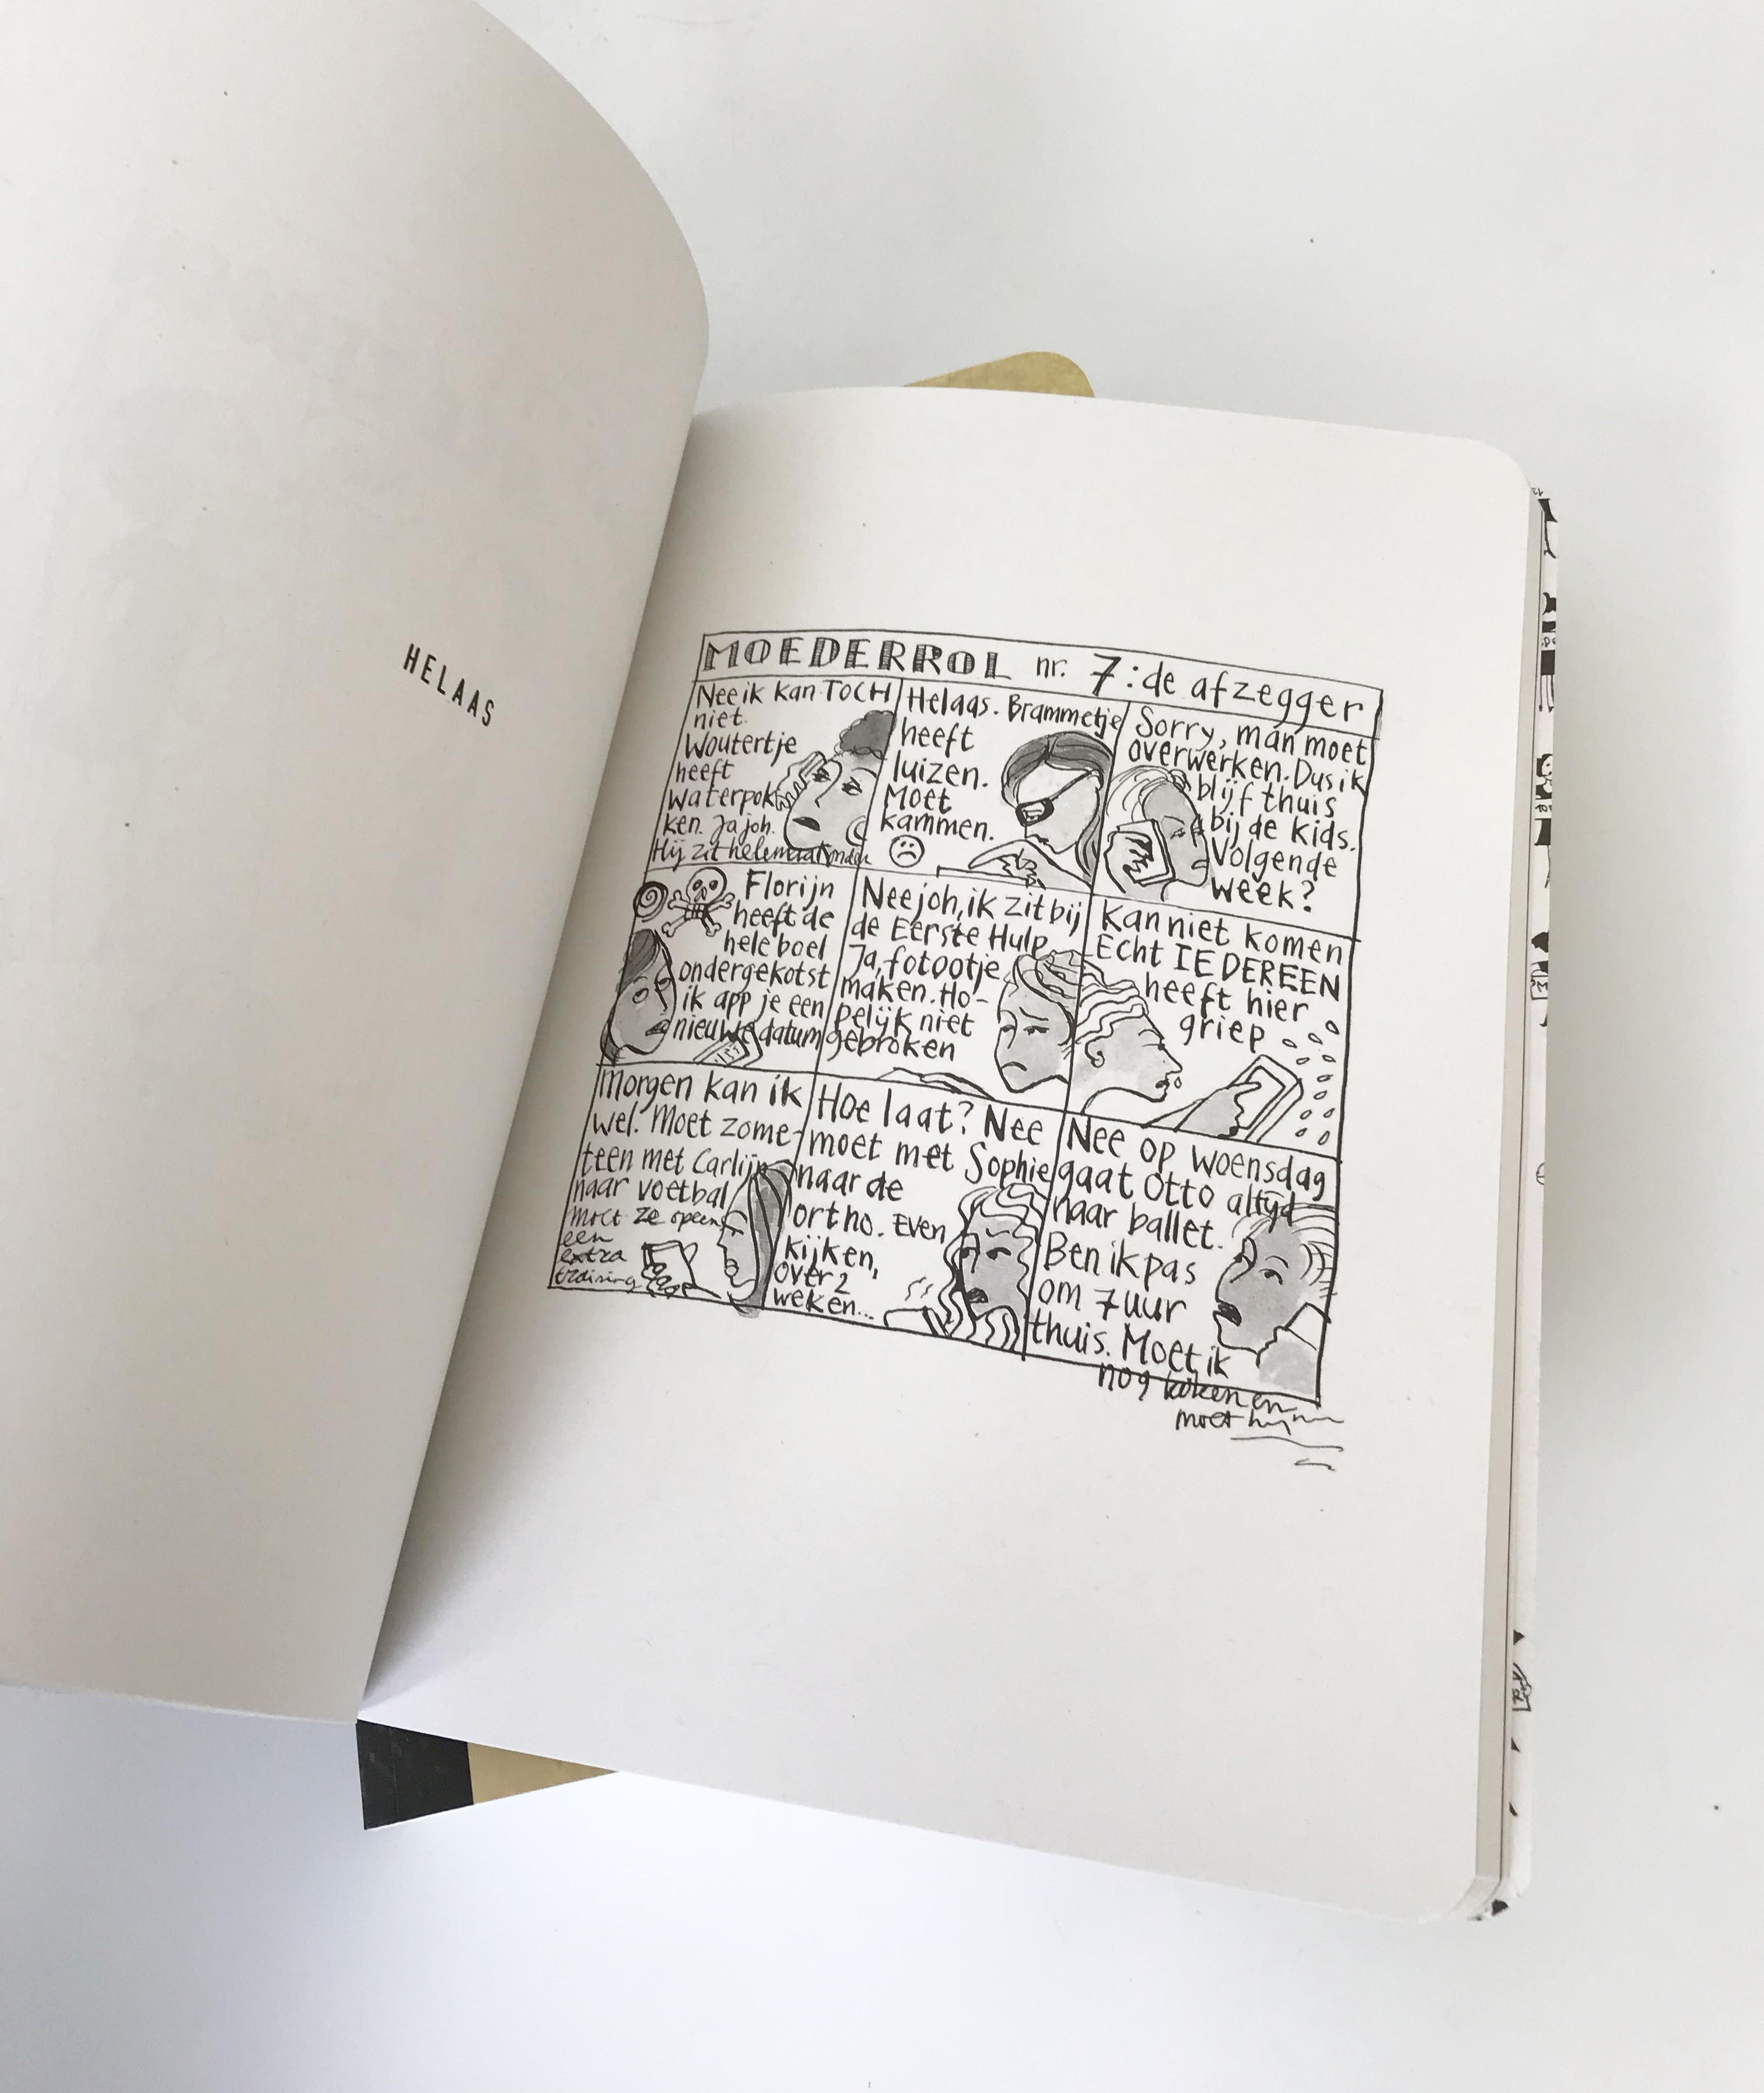 HELAAS
MOEDERROL nr. 7: de afzegger
Nee ik kan TOCH
niet.
Woutertje
heeft
waterpok
ken. Ja joh.
Hij zit helemaal onder
Helaas. Brammetje
heeft
luizen.
Moet
kammen.
Sorry, man moet
overwerken. Dus ik
blijf thuis
bij de kids.
Volgende
week?
Florijn
heeft de
heleboel
ondergekotst
ik app je een
nieuwe datum
Nee joh, ik zit bij
de Eerste Hulp
Ja, fotootje
maken. Ho-
pelijk niet
gebroken
Kan niet komen
Echt IEDEREEN
heeft hier
griep
Morgen kan ik
wel. Moet zome-
teen met Carlijn
naar voetbal
moet ze opeens
een
extra
training
Hoe laat? Nee
moet met Sophie
naar de
ortho. Even
kijken,
over 2
weken...
Nee op woensdag
gaat Otto altijd
naar ballet.
Ben ik pas
om 7 uur
thuis. Moet ik
nog koken en
moet